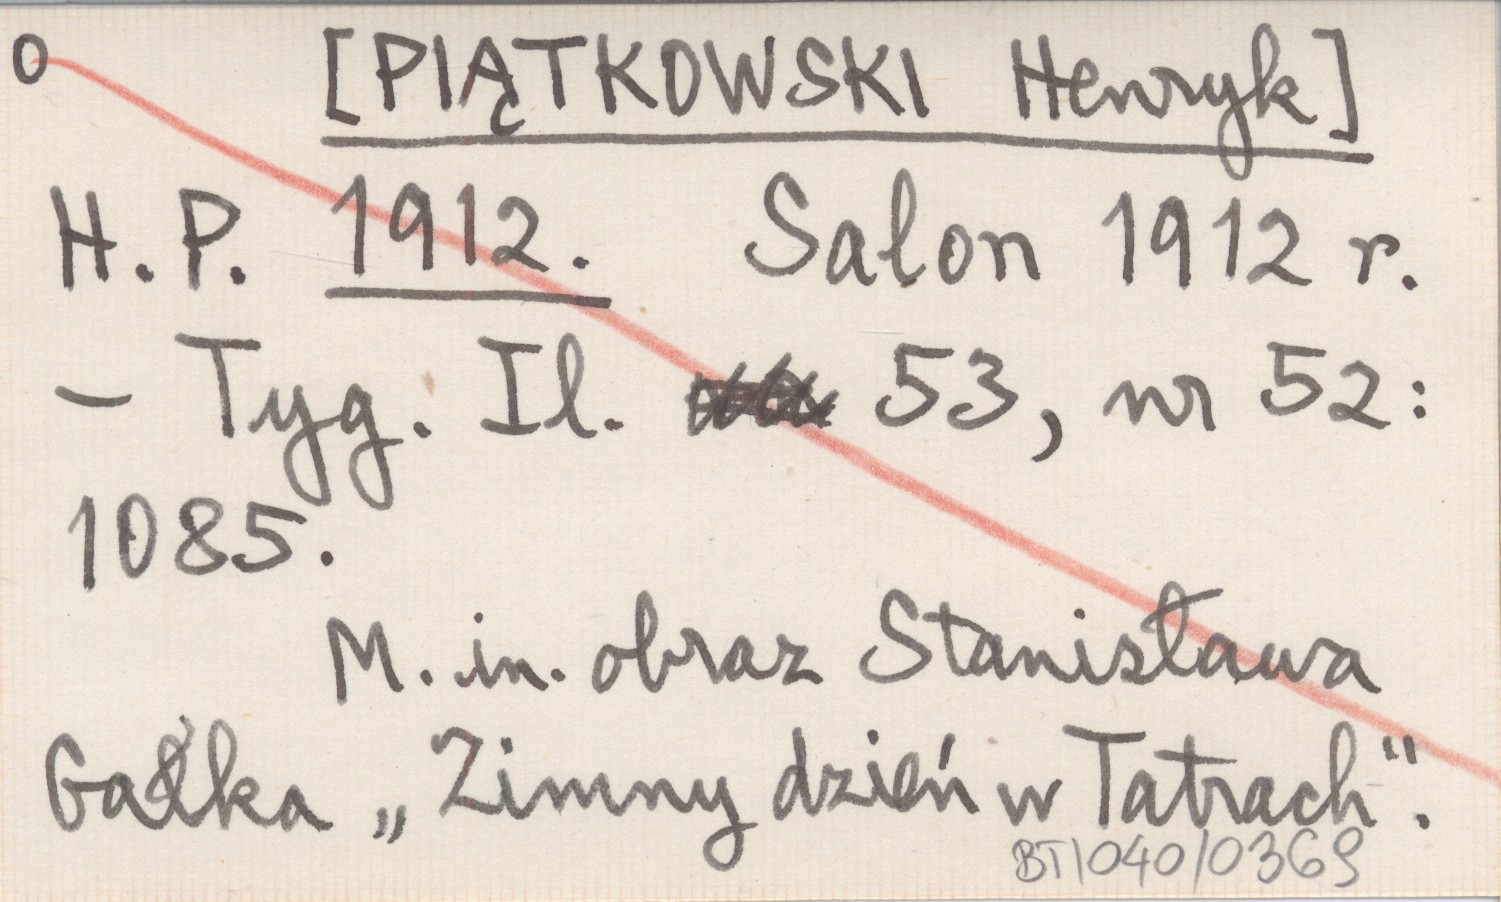 O [PIĄTKOWSKI Henryk]
H. P. 1912. Salon 1912 r.
– Tyg. Il. 53, nr 52:
1085.
M. in. obraz Stanisława
Gałka „Zimny dzień w Tatrach".
BT/040/0369